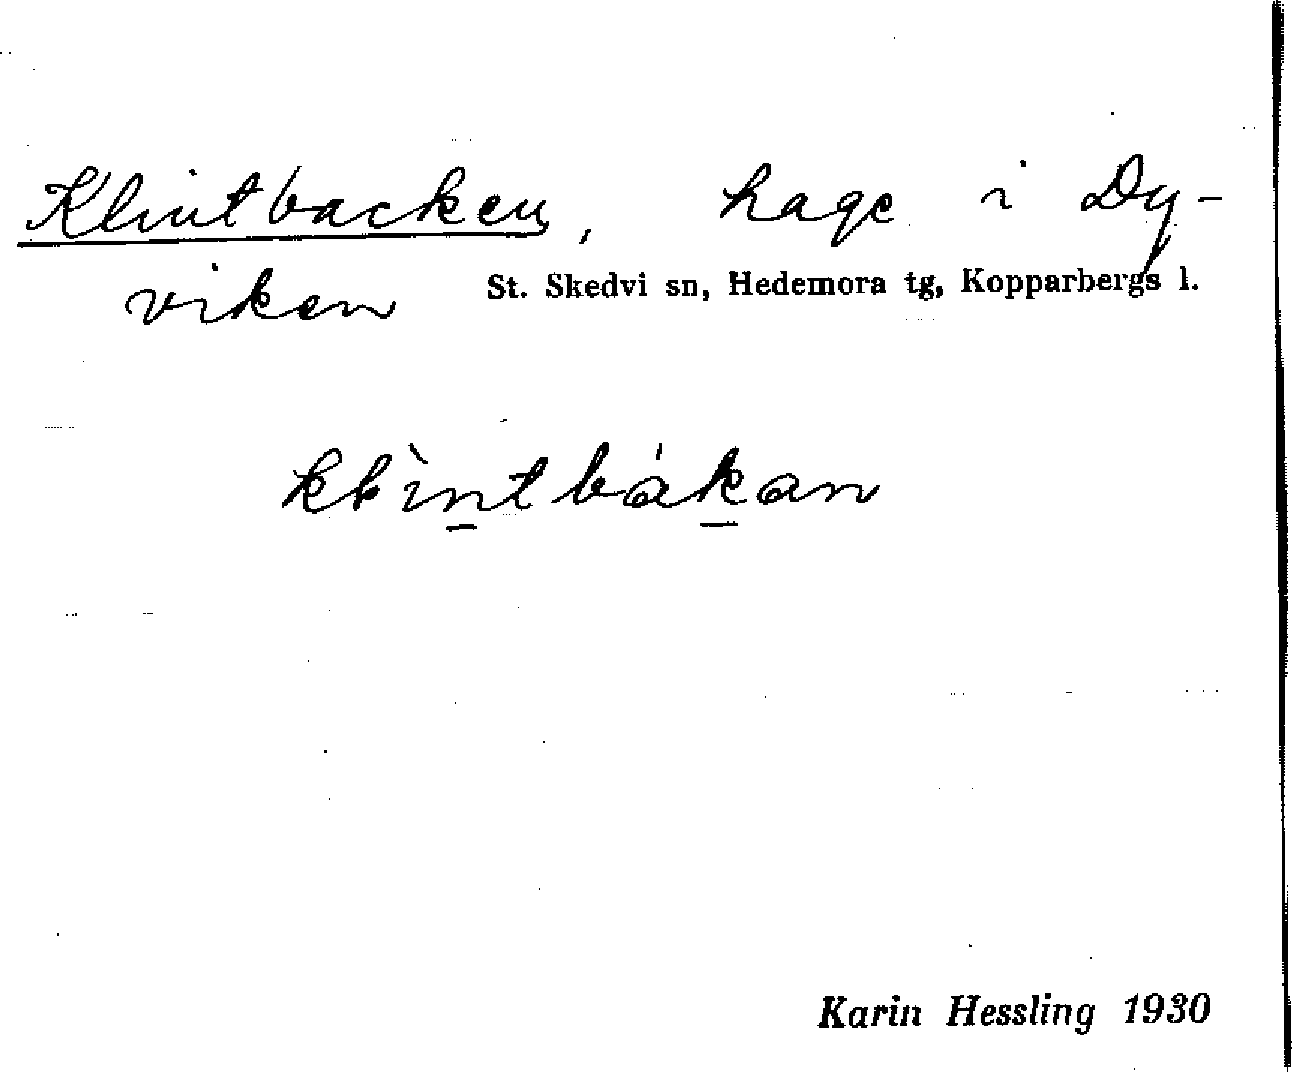 Klintbacken, hage i Dy-
viken St. Skedvi sn, Hedemora tg, Kopparbergs l.
klìntbákan
Karin Hessling 1930